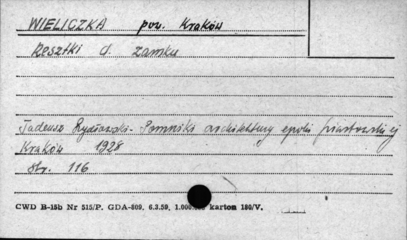 WIELICZKA pow. Kraków
Resztki d. zamku
Tadeusz Rydlewski - Pomniki architektury epoki piastowskiej
Kraków 1928
str. 116
CWD B-15b Nr 515/P. GDA-809, 6.3.59, 1.000.000 karton 180/V.